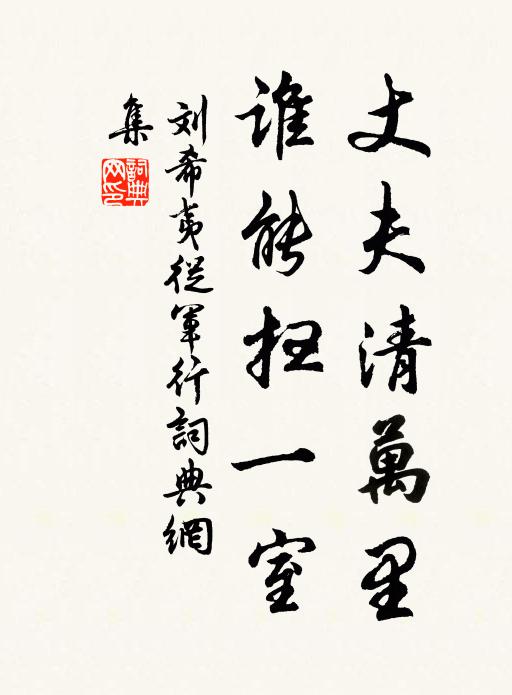 丈夫清萬里
谁能扫一室
刘希夷從軍行詞典網
集
詞典網印